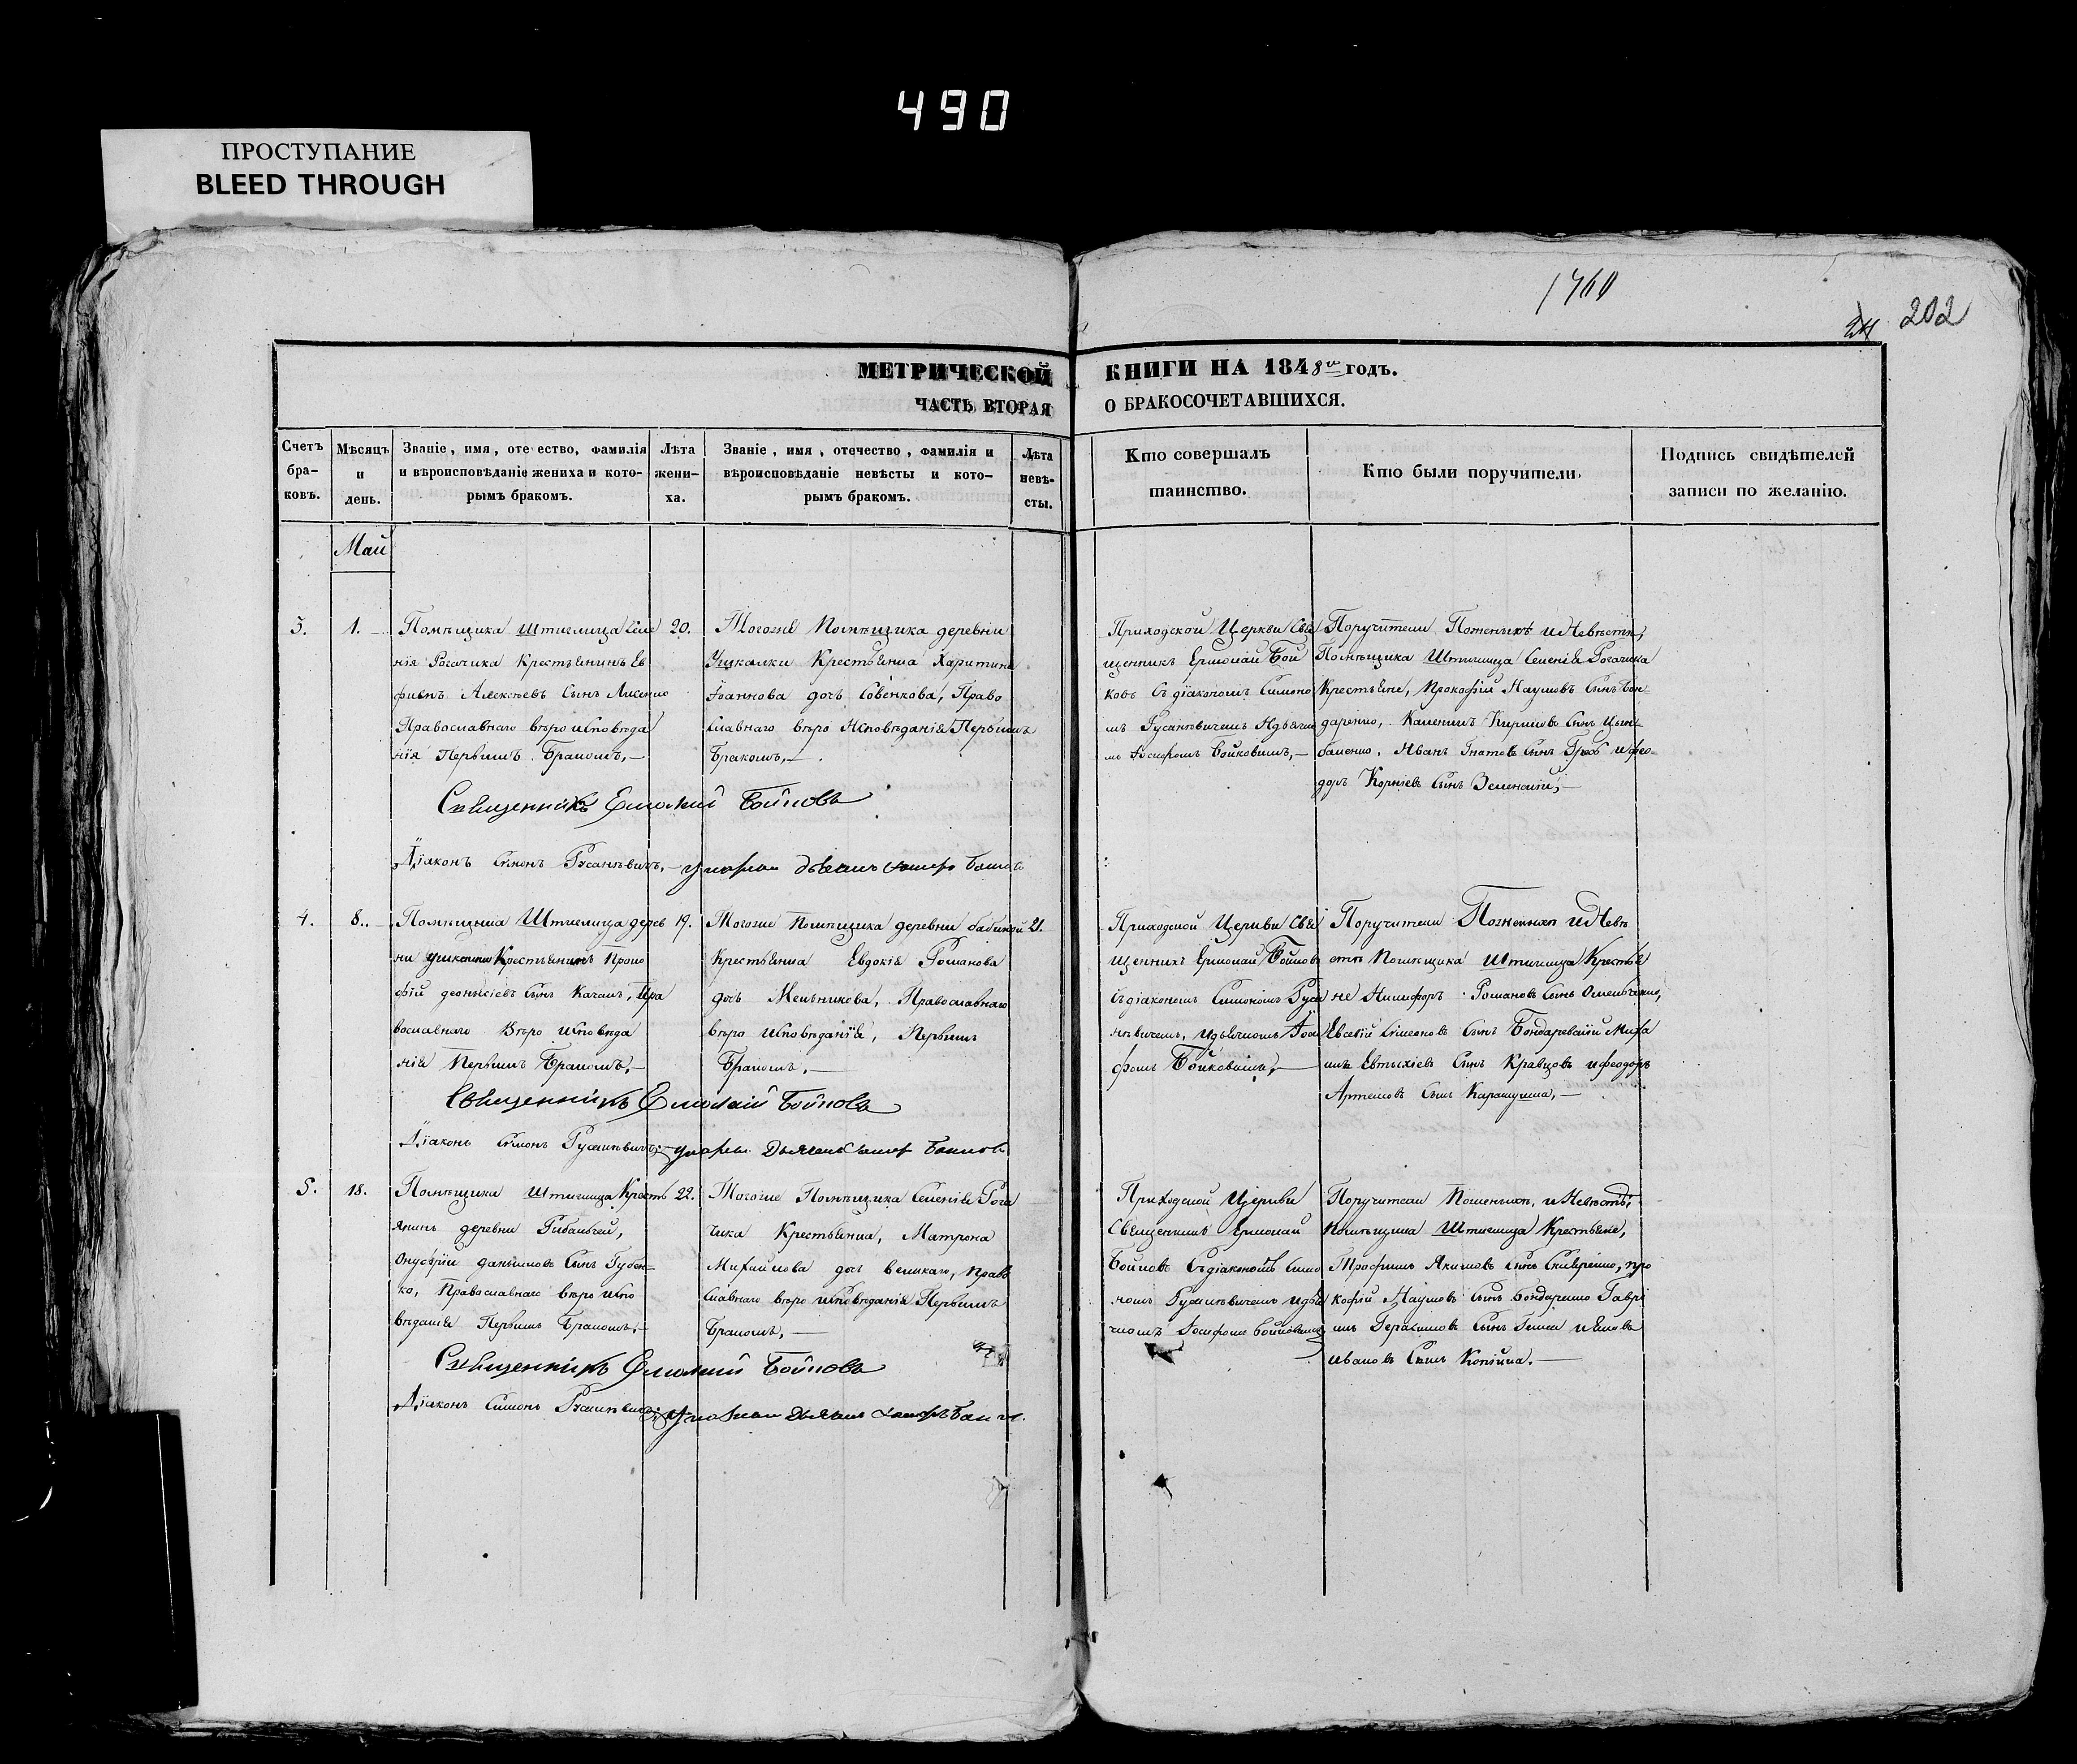 490
ПРОСТУПАНИЕ
BLEED THROUGH
1760
202
МЕТРИЧЕСКОЙ
ЧАСТЬ ВТОРАЯ
КНИГИ НА 1848 годъ.
О БРАКОСОЧЕТАВШИХСЯ.
Счетъ
бра-
ковъ.
Мѣсяцъ
и
день.
Званіе, имя, отечество, фамилія
и вѣроисповѣданіе жениха и кото-
рымъ бракомъ.
Лѣта
жени-
ха.
Званіе, имя, отечество, фамилія и
вѣроисповѣданіе невѣсты и кото-
рымъ бракомъ.
Лѣта
невѣ-
сты.
Кто совершалъ
таинство.
Кто были поручители.
Подпись свидѣтелей
записи по желанію.
Май
3.
1.
Помѣщика Штиглица Селе
нія Рогачика Крестьянинъ Ев
фимъ Алексѣевъ Сынъ Лисенко
Православнаго вѣро исповѣда
нія Первымъ Бракомъ,—
20.
Тогоже Помѣщика деревни
Ушкалки Крестьянка Харитина
Іоаннова дочь Совенкова, Право
славнаго вѣро Исповѣданія Первымъ
Бракомъ,—
Приходской Церкви Свя
щенникъ Ермолай Бой
ковъ Съ діакономъ Симоно
мъ Русаневичемъ Идьячко
мъ Іосифомъ Бойковымъ,—
Поручители Поженихѣ и Невѣстѣ,
Помѣщика Штиглица Селенія Рогачика
Крестьяне, Прокофій Наумовъ Сынъ Бон-
даренко, Калиникъ Кириловъ Сынъ Цым-
баленко, Иванъ Гнатовъ Сынъ Гребъ и Фео-
доръ Корніевъ Сынъ Зеленскій,—
Священникъ Ермолай Бойковъ
Діаконъ Симонъ Русаневичъ,—
4.
8.
Помѣщика Штиглица дерев
ни Ушкалки Крестьянинъ Проко
фій Деонисіевъ Сынъ Качанъ, Пра
вославнаго Вѣро исповѣда
нія Первымъ Бракомъ,—
19.
Тогоже Помѣщика деревни бабиной
Крестьянка Евдокія Романова
дочь Мельникова, Православнаго
вѣро исповѣданія, Первымъ
Бракомъ.—
21.
Приходской Церкви Свя
щенникъ Ермолай Бойковъ
Съ діакономъ Симономъ Руса
невичемъ, Идьячкомъ Іоси
фомъ Бойковымъ,—
Поручители Поженихѣ и Невѣ
стѣ Помѣщика Штиглица Крестья
не Никифоръ Романовъ Сынъ Омельченко,
Евсевій Симеоновъ Сынъ Бондаревскій Миха
илъ Евтыхіевъ Сынъ Кравцовъ и феодоръ
Артемовъ Сынъ
Священникъ Ермолай Бойковъ
Діаконъ Симонъ Русаневичъ,—
5.
18.
Помѣщика Штиглица Кресть
янинъ деревни
Онуфрій даниловъ Сынъ Губен=
ко, Православнаго вѣро испо
вѣданія Первымъ Бракомъ,—
22.
Тогоже Помѣщика Селенія Рога
чика Крестьянка, Матрона
Михайлова дочь Великаго, Право
славнаго вѣро исповѣданія Первымъ
Бракомъ,—
Приходской Церкви
Священникъ Ермолай
Бойковъ Съ діакономъ Симо
номъ Русаневичемъ идья
чкомъ Іосифомъ Бойковымъ
Поручители Поженихѣ, и Невѣстѣ,
Помѣщика Штиглица Крестьяне,
Трофимъ Якимовъ Сынъ про
кофій Наумовъ Сынъ Бондаренко Гаврі
илъ Герасимовъ Сынъ
Ивановъ Сынъ
Священникъ Ермолай Бойковъ
Діаконъ Симонъ Русаневичъ